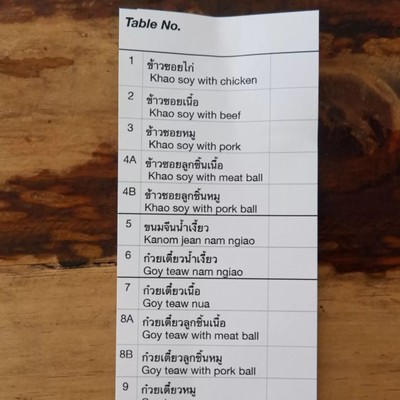 Table No.
1 ข้าวซอยไก่
Khao soy with chicken
2 ข้าวซอยเนื้อ
Khao soy with beef
3 ข้าวซอยหมู
Khao soy with pork
4A ข้าวซอยลูกชิ้นเนื้อ
Khao soy with meat ball
4B ข้าวซอยลูกชิ้นหมู
Khao soy with pork ball
5 ขนมจีนน้ำเงี้ยว
Kanom jean nam ngiao
6 ก๋วยเตี๋ยวน้ำเงี้ยว
Goy teaw nam ngiao
7 ก๋วยเตี๋ยวเนื้อ
Goy teaw nua
8A ก๋วยเตี๋ยวลูกชิ้นเนื้อ
Goy teaw with meat ball
8B ก๋วยเตี๋ยวลูกชิ้นหมู
Goy teaw with pork ball
9 ก๋วยเตี๋ยวหมู